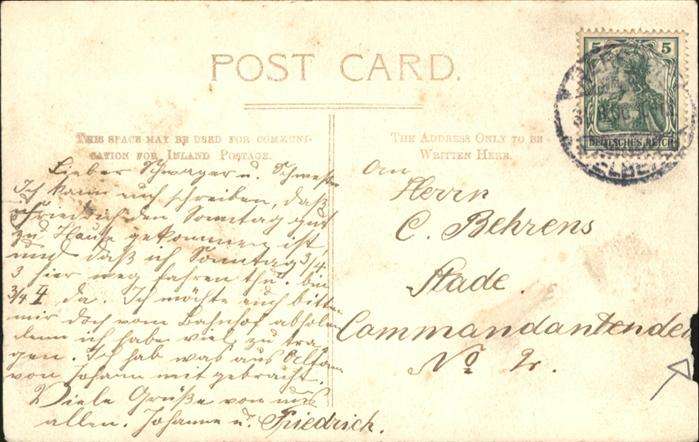 POST CARD.
THIS SPACE MAY BE USED FOR COMMUNI-
CATION FOR INLAND POSTAGE.
THE ADDRESS ONLY TO BE
WRITTEN HERE.
5 5
DEUTSCHES REICH
Lieber Schwager u. Schwester
Ich kann euch schreiben, daß
Friedrich den Sonntag gut
zu Hause gekommen ist
und daß ich Sonntag 3/4
3 hier weg fahren thu. bin
3/4 4 da. Ich möchte euch bitten
mir doch vom Bahnhof abholen
denn ich habe viel zu tra-
gen. Ich hab was aus
von Johann mit gebracht.
Viele Grüße von uns
allen. Johanne u. Friedrich.
An
Herrn
C. Behrens
Stade.
Commandantendeich
No 2.